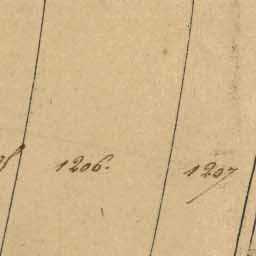 1206.
1207